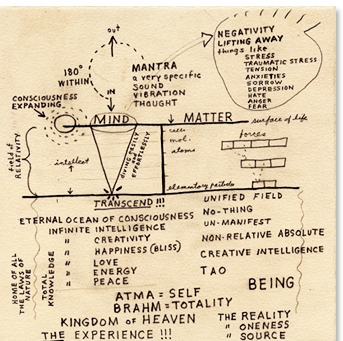 out
180°
WITHIN
IN
MANTRA
a very specific
SOUND
VIBRATION
THOUGHT
NEGATIVITY
LIFTING AWAY
things like
STRESS
TRAUMATIC STRESS
TENSION
ANXIETIES
SORROW
DEPRESSION
HATE
ANGER
FEAR
CONSCIOUSNESS
EXPANDING
MIND
MATTER
surface of life
field of
RELATIVITY
intellect
DIVING EASILY
and EFFORTLESSLY
cells
mol.
atoms
forces
elementary particles
TRANSCEND!!!
ETERNAL OCEAN OF CONSCIOUSNESS
INFINITE INTELLIGENCE
" CREATIVITY
" HAPPINESS (BLISS)
" LOVE
" ENERGY
" PEACE
UNIFIED FIELD
No-THING
UN-MANIFEST
NON-RELATIVE ABSOLUTE
CREATIVE INTELLIGENCE
TAO
BEING
HOME OF ALL
THE LAWS OF
NATURE
TOTAL
KNOWLEDGE
ATMA = SELF
BRAHM = TOTALITY
KINGDOM of HEAVEN
THE EXPERIENCE !!!
THE REALITY
" ONENESS
" SOURCE